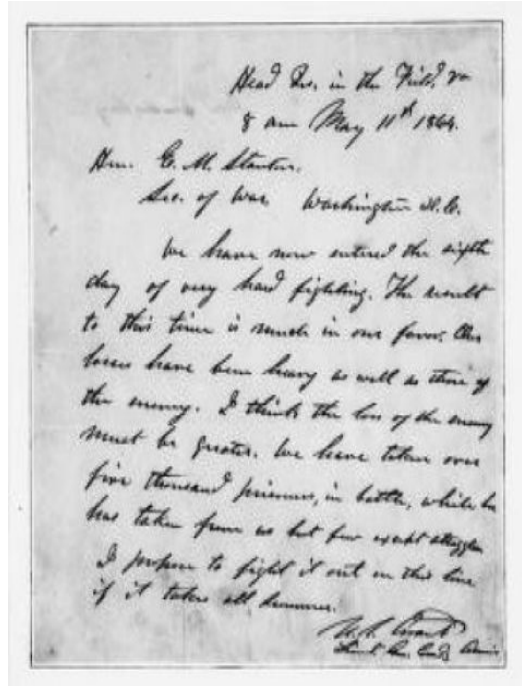 Head Qrs. in the Field, Va
8 am May 11th 1864.
Hon. E. M. Stanton,
Sec. of War, Washington D.C.
We have now entered the eighth
day of very hard fighting. The result
to this time is much in our favor. Our
losses have been heavy as well as those of
the enemy. I think the loss of the enemy
must be greater. We have taken over
five thousand prisoners, in battle, while he
has taken from us but few except stragglers
I propose to fight it out on this line
if it takes all summer.
U. S. Grant
Lieut. Gen. Comdg Armies